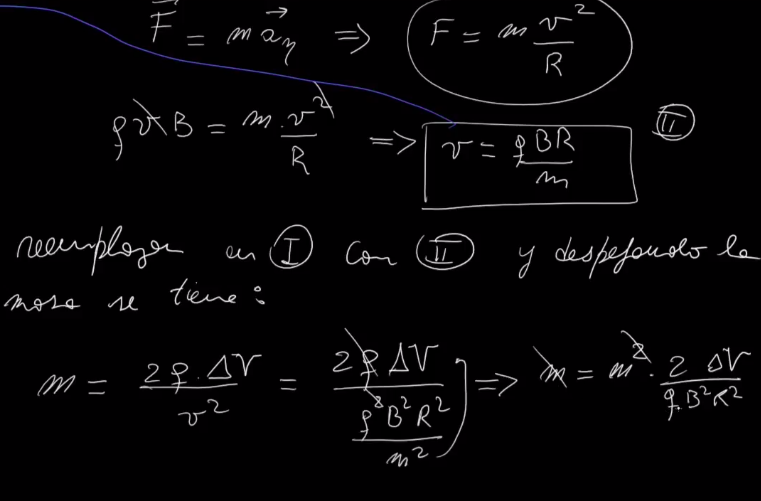 F⃗ = m a⃗ₙ ⇒ F = m v²/R
q v B = m · v²/R ⇒ v = qBR/m II
reemplazar en I con II y despejando la
masa se tiene:
m = 2q · ΔV / v² = 2q ΔV / (q²B²R²/m²) ⇒ m = m² · 2 ΔV / q·B²R²